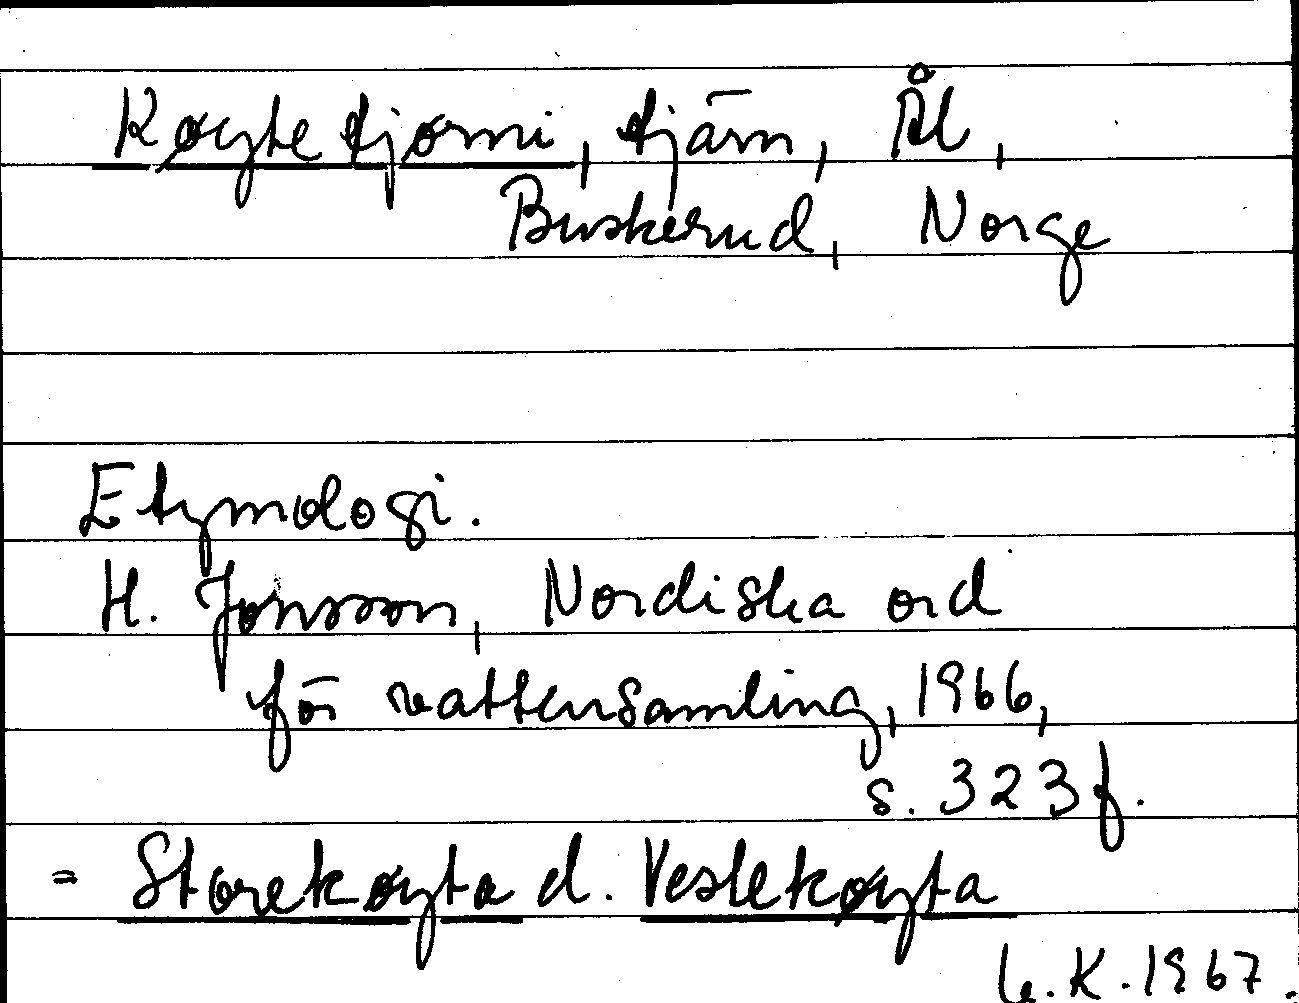 Køytetjørni, tjärn, Ål,
Buskerud, Norge
Etymologi.
H. Jonsson, Nordiska ord
för vattensamling, 1966,
s. 323 f.
= Storekøyta d. Veslekøyta
K. 1967.